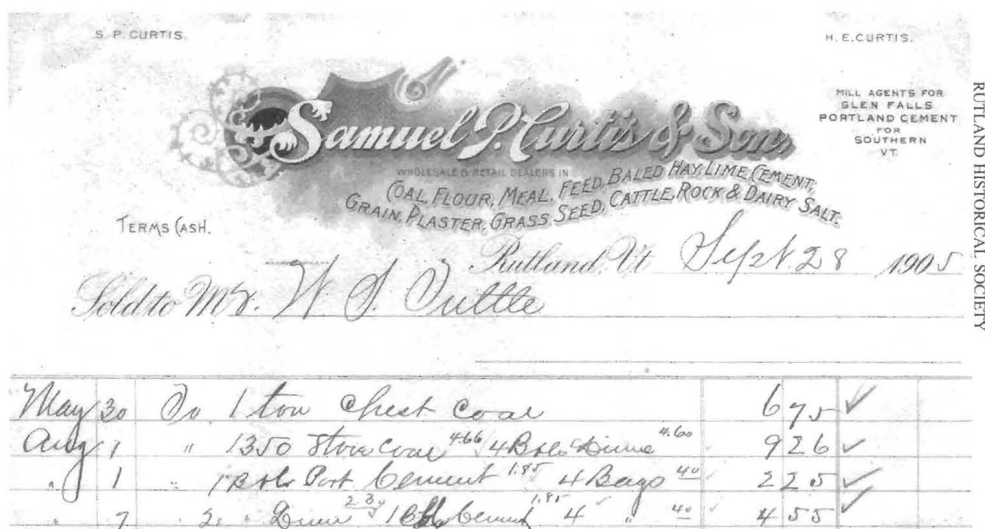 S. P. CURTIS.
H. E. CURTIS.
MILL AGENTS FOR
GLEN FALLS
PORTLAND CEMENT
FOR
SOUTHERN
VT.
Samuel P. Curtis & Son,
WHOLESALE & RETAIL DEALERS IN
COAL, FLOUR, MEAL, FEED, BALED HAY, LIME, CEMENT,
GRAIN, PLASTER, GRASS, SEED, CATTLE, ROCK & DAIRY SALT.
TERMS CASH.
Rutland, Vt Sept. 28 1905
Sold to Mr. W. S. Tuttle
RUTLAND HISTORICAL SOCIETY
May 30 To 1 ton Chest Coal 6 75
Aug 1 " 1350 Stove Coal 4.66 4 Bbls Lime 4.60 9 26
" 1 " 1 Bbl Port Cement 1.85 4 Bags 40 2 25
" 7 2 " Lime 1 Bbl Cement 1.85 4 " 40 4 55